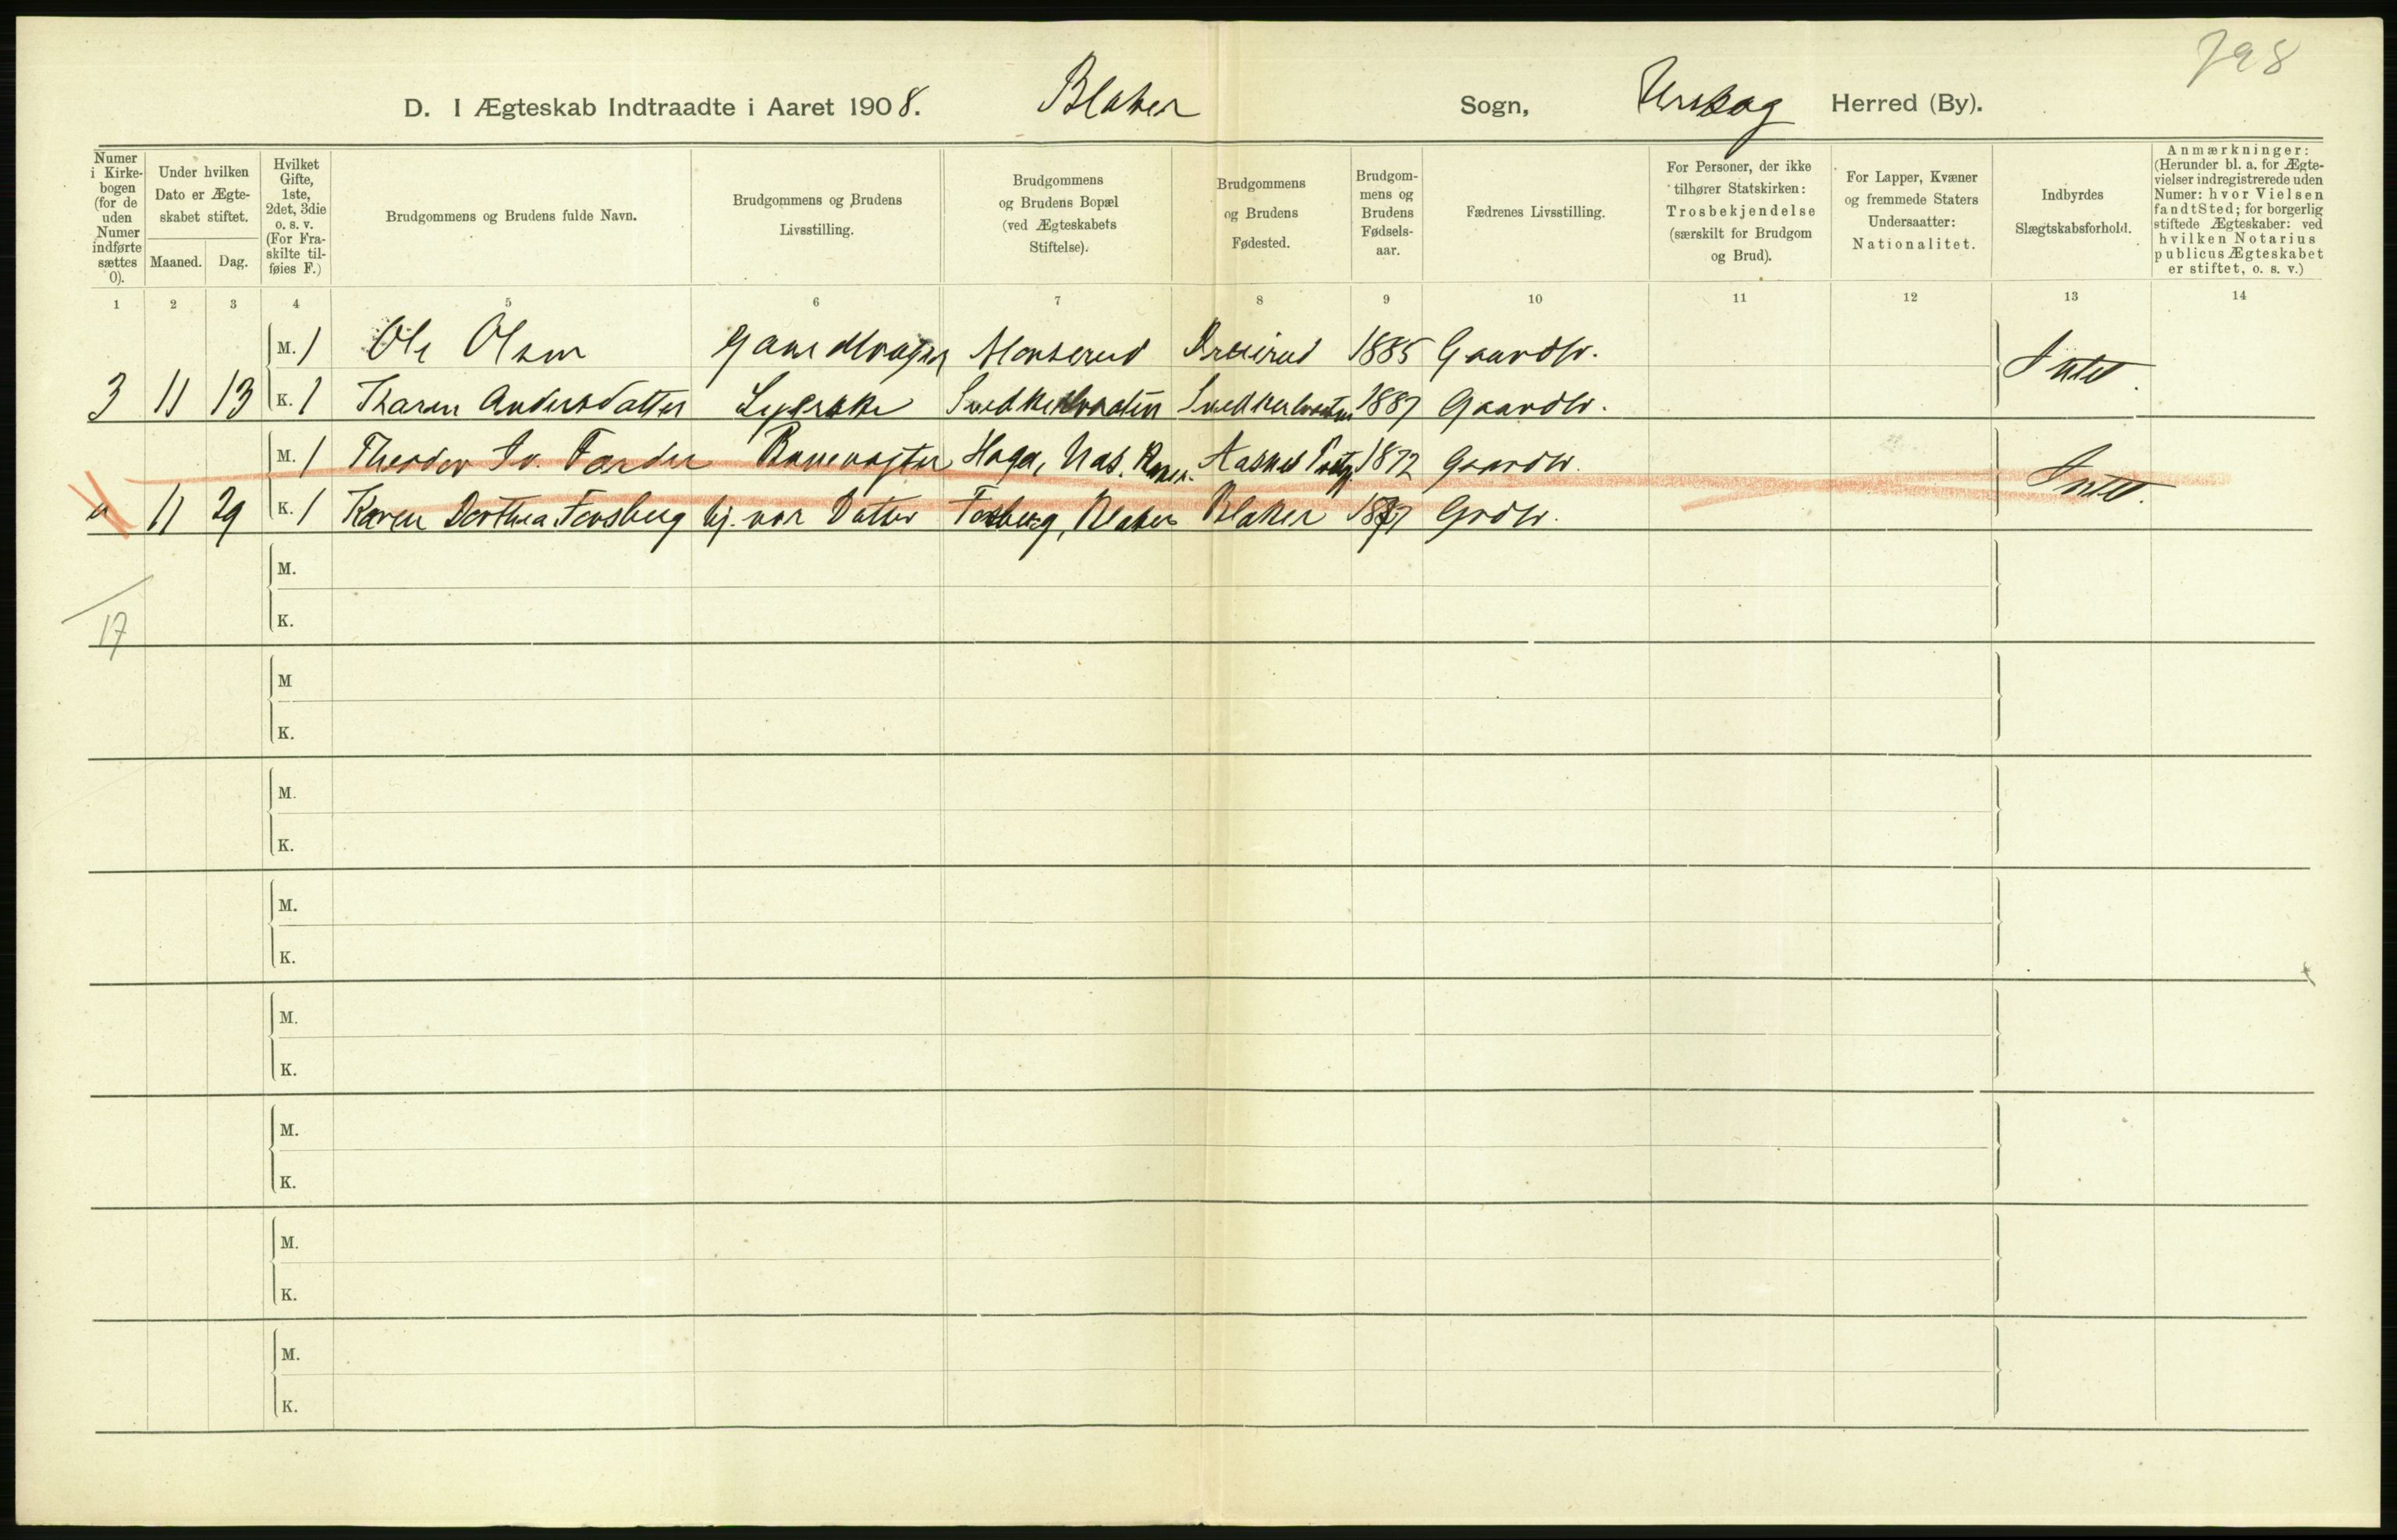 798
D. I Ægteskab Indtraadte i Aaret 1908. Blaker Sogn, Urskog Herred (By).
Numer i Kirkebogen (for de uden Numer indførte sættes 0).
Under hvilken Dato er Ægteskabet stiftet.
Maaned. Dag.
Hvilket Gifte, 1ste, 2det, 3die o. s. v. (For Fraskilte tilføies F.)
Brudgommens og Brudens fulde Navn.
Brudgommens og Brudens Livsstilling.
Brudgommens og Brudens Bopæl (ved Ægteskabets Stiftelse).
Brudgommens og Brudens Fødested.
Brudgommens og Brudens Fødselsaar.
Fædrenes Livsstilling.
For Personer, der ikke tilhører Statskirken: Trosbekjendelse (særskilt for Brudgom og Brud).
For Lapper, Kvæner og fremmede Staters Undersaatter: Nationalitet.
Indbyrdes Slægtskabsforhold.
Anmærkninger: (Herunder bl. a. for Ægtevielser indregistrerede uden Numer: hvor Vielsen fandt Sted; for borgerlig stiftede Ægteskaber: ved hvilken Notarius publicus Ægteskabet er stiftet, o. s. v.)
1 2 3 4 5 6 7 8 9 10 11 12 13 14
M. 1 Ole Olsen Monserud 1885 Gaardbr. Intet.
3 11 13 K. 1 Karen Andersdatter Syerske 1887 Gaardbr.
M. 1 Theodor Banevogter Haga, Nas, Aasnes 1872 Gaardbr. Intet.
4 11 29 K. 1 Karen Dorthea Fossberg hj. vær Datter Fosberg, Blaker Blaker 1877 Grdbr.
M.
17 K.
M
K.
M.
K.
M.
K.
M.
K.
M.
K.
M.
K.
M.
K.